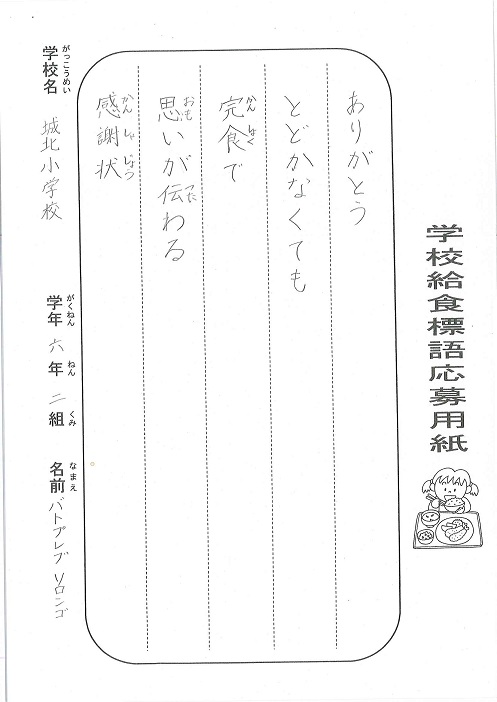 学校給食標語応募用紙
ありがとう
とどかなくても
完食で
かんしょく
思いが伝わる
おも
つた
感謝状
かんしゃじょう
学校名
がっこうめい
城北小学校
学年 六 年 二 組
がくねん
ねん
くみ
名前
なまえ
バトプレブ ソロンゴ